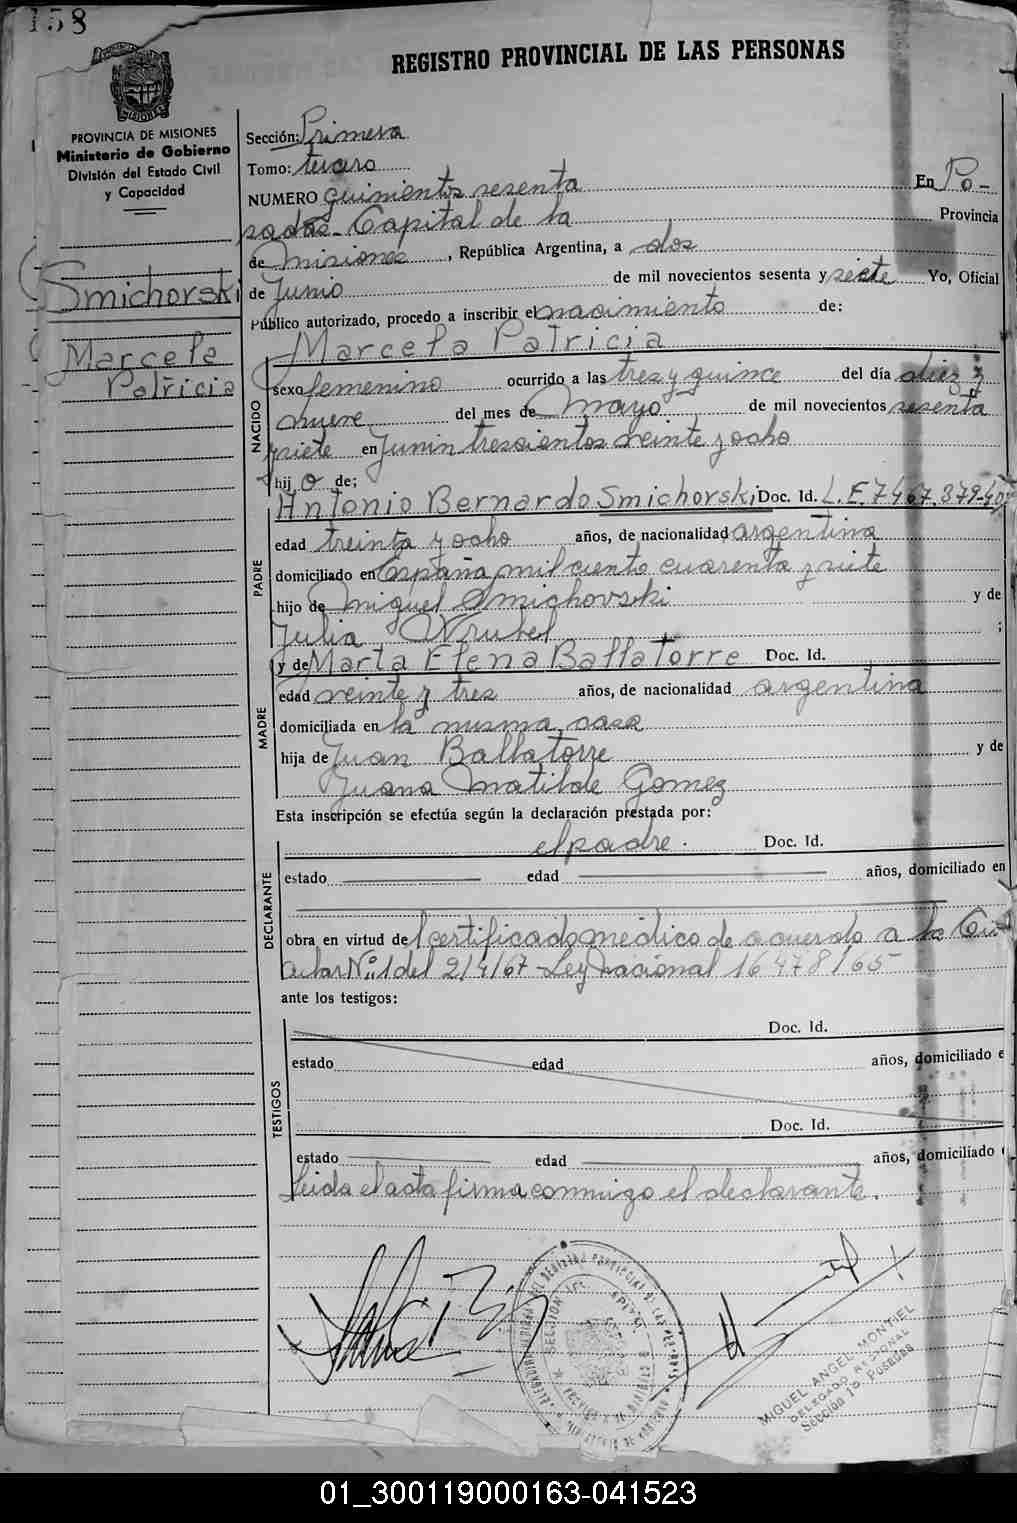 158
REGISTRO PROVINCIAL DE LAS PERSONAS
MISIONES
PROVINCIA DE MISIONES
Ministerio de Gobierno
División del Estado Civil
y Capacidad
Smichorski
Marcela
Patricia
Sección: Primera
Tomo: tercero
NUMERO quinientos sesenta En Po-
sadas Capital de la Provincia
de Misiones, República Argentina, a dos
de Junio de mil novecientos sesenta y siete Yo, Oficial
Público autorizado, procedo a inscribir el nacimiento de:
Marcela Patricia
NACIDO
sexo femenino ocurrido a las tres y quince del día diez y
nueve del mes de Mayo de mil novecientos sesenta
y siete en Junin trescientos veinte y ocho
hij a de;
PADRE
Antonio Bernardo Smichorski Doc. Id. L.E. 7467.379-40
edad treinta y ocho años, de nacionalidad argentina
domiciliado en España mil ciento cuarenta y siete
hijo de Miguel Smichovski y de
Julia Wrubel ;
y de Marta Elena Ballatorre Doc. Id.
MADRE
edad veinte y tres años, de nacionalidad argentina
domiciliada en la misma casa
hija de Juan Ballatorre y de
Juana Matilde Gomez
Esta inscripción se efectúa según la declaración prestada por:
DECLARANTE
el padre. Doc. Id.
estado edad años, domiciliado en
obra en virtud del certificado médico de acuerdo a la Cir
cular Nº 1 del 2/4/67 Ley nacional 16478/65
ante los testigos:
TESTIGOS
Doc. Id.
estado edad años, domiciliado e
Doc. Id.
estado edad años, domiciliado
Leida el acta firma conmigo el declarante.
MIGUEL ANGEL MONTIEL
DELEGADO REGIONAL
Sección 1a Posadas
01_300119000163-041523